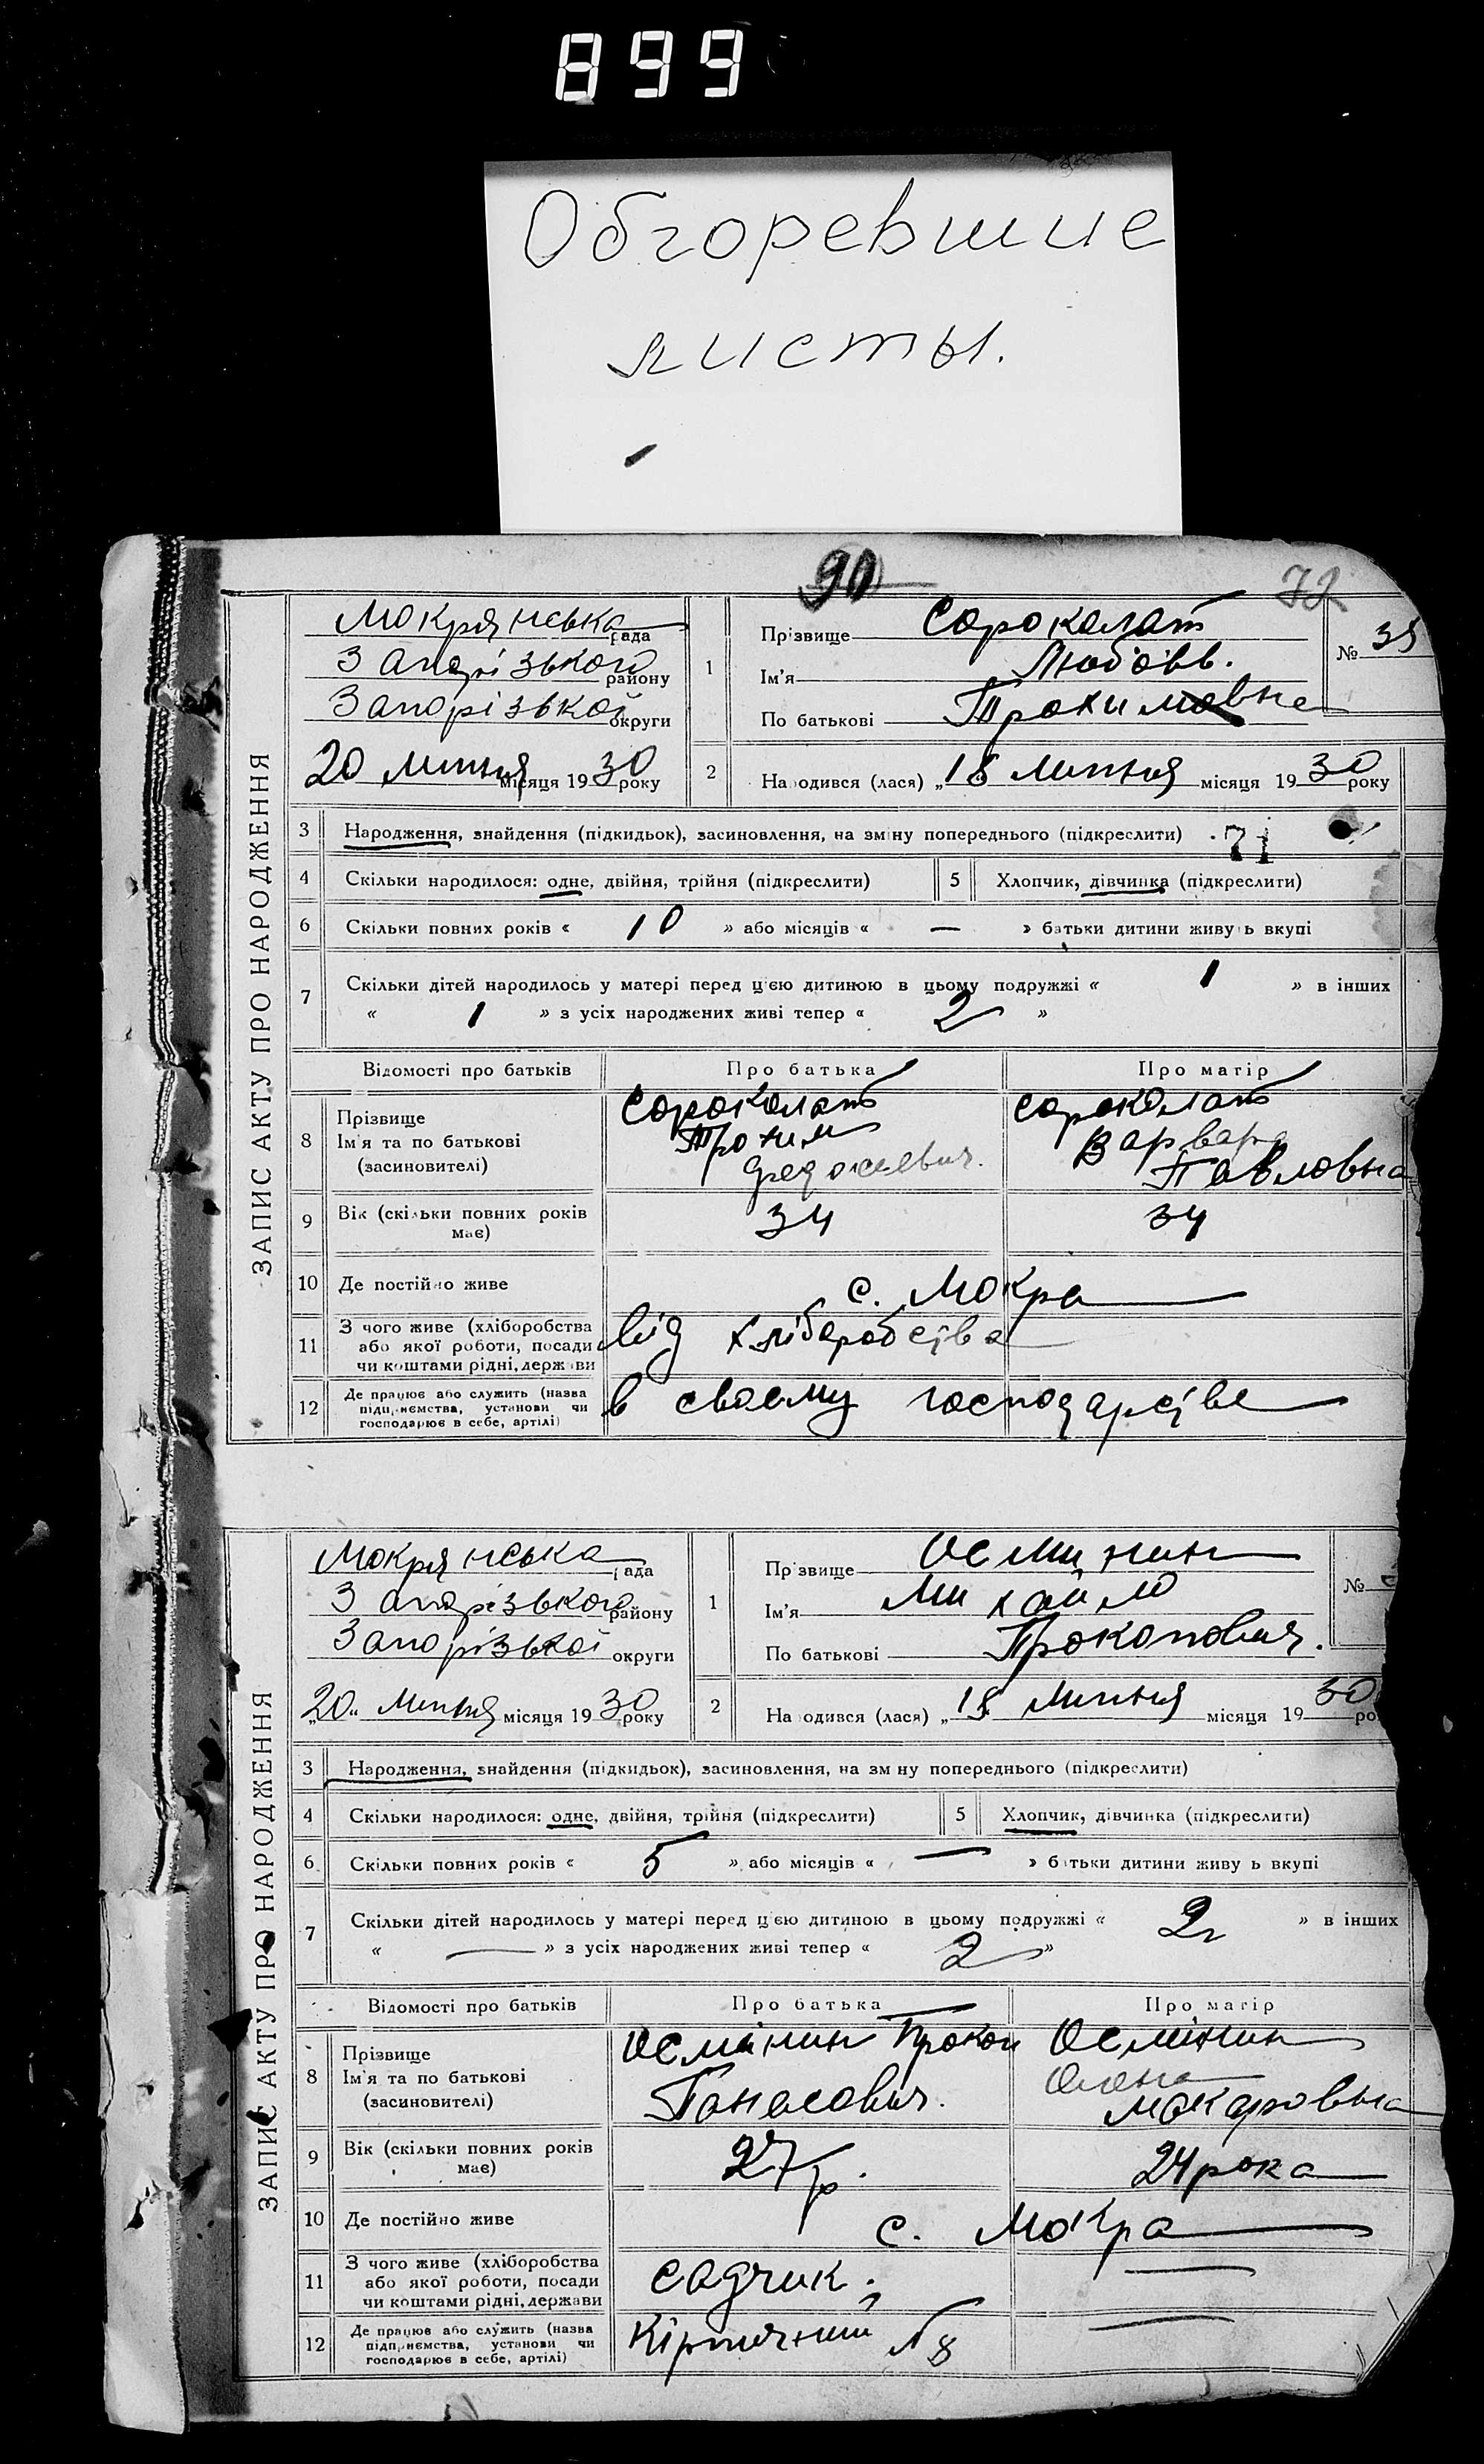 899
Обгоревшие
листы.
90
72
ЗАПИС АКТУ ПРО НАРОДЖЕННЯ
Мокрянська рада
Запорізького району
Запорізької округи
20 липня місяця 1930 року
1 Прізвище Сороколат
Ім'я Любовь.
По батькові Трохимовна
№ 35
2 Народився (лася) „18 липня місяця 1930 року
3 Народження, знайдення (підкидьок), засиновлення, на зміну попереднього (підкреслити)
71
4 Скільки народилося: одне, двійня, трійня (підкреслити) 5 Хлопчик, дівчинка (підкреслити)
6 Скільки повних років « 10 » або місяців « — » батьки дитини живуть вкупі
7 Скільки дітей народилось у матері перед цією дитиною в цьому подружжі « 1 » в інших
« 1 » з усіх народжених живі тепер « 2 »
Відомості про батьків Про батька Про матір
8 Прізвище Ім'я та по батькові (засиновителі)
Сороколат Трохим
Сороколат Варвара Павловна
9 Вік (скільки повних років має) 34 34
10 Де постійно живе с. Мокра
11 З чого живе (хліборобства
або якої роботи, посади
чи коштами рідні, держави
від хліборобства
12 Де працює або служить (назва
підприємства, установи чи
господарює в себе, артілі)
в своєму господарстве
ЗАПИС АКТУ ПРО НАРОДЖЕННЯ
Мокрянська рада
Запорізького району
Запорізької округи
„20" липня місяця 1930 року
1 Прізвище Осминин
Ім'я Михайло
По батькові Прокопович.
№
2 Народився (лася) „18 липня місяця 1930 ро
3 Народження, знайдення (підкидьок), засиновлення, на зміну попереднього (підкреслити)
4 Скільки народилося: одне, двійня, трійня (підкреслити) 5 Хлопчик, дівчинка (підкреслити)
6 Скільки повних років « 5 » або місяців « — » батьки дитини живуть вкупі
7 Скільки дітей народилось у матері перед цією дитиною в цьому подружжі « 2 » в інших
« — » з усіх народжених живі тепер « 2 »
Відомості про батьків Про батька Про матір
8 Прізвище Ім'я та по батькові (засиновителі)
Осмінин Прокоп Панасович.
Осмінин Олена Макаровна
9 Вік (скільки повних років має) 27 р. 24 рока
10 Де постійно живе с. Мокра
11 З чого живе (хліборобства
або якої роботи, посади
чи коштами рідні, держави
садчик.
12 Де працює або служить (назва
підприємства, установи чи
господарює в себе, артілі)
Кірпичний № 8